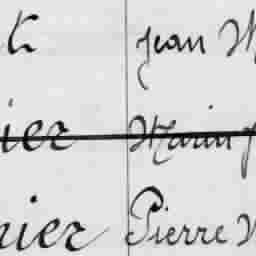 Jean M
ier Marin
nier Pierre